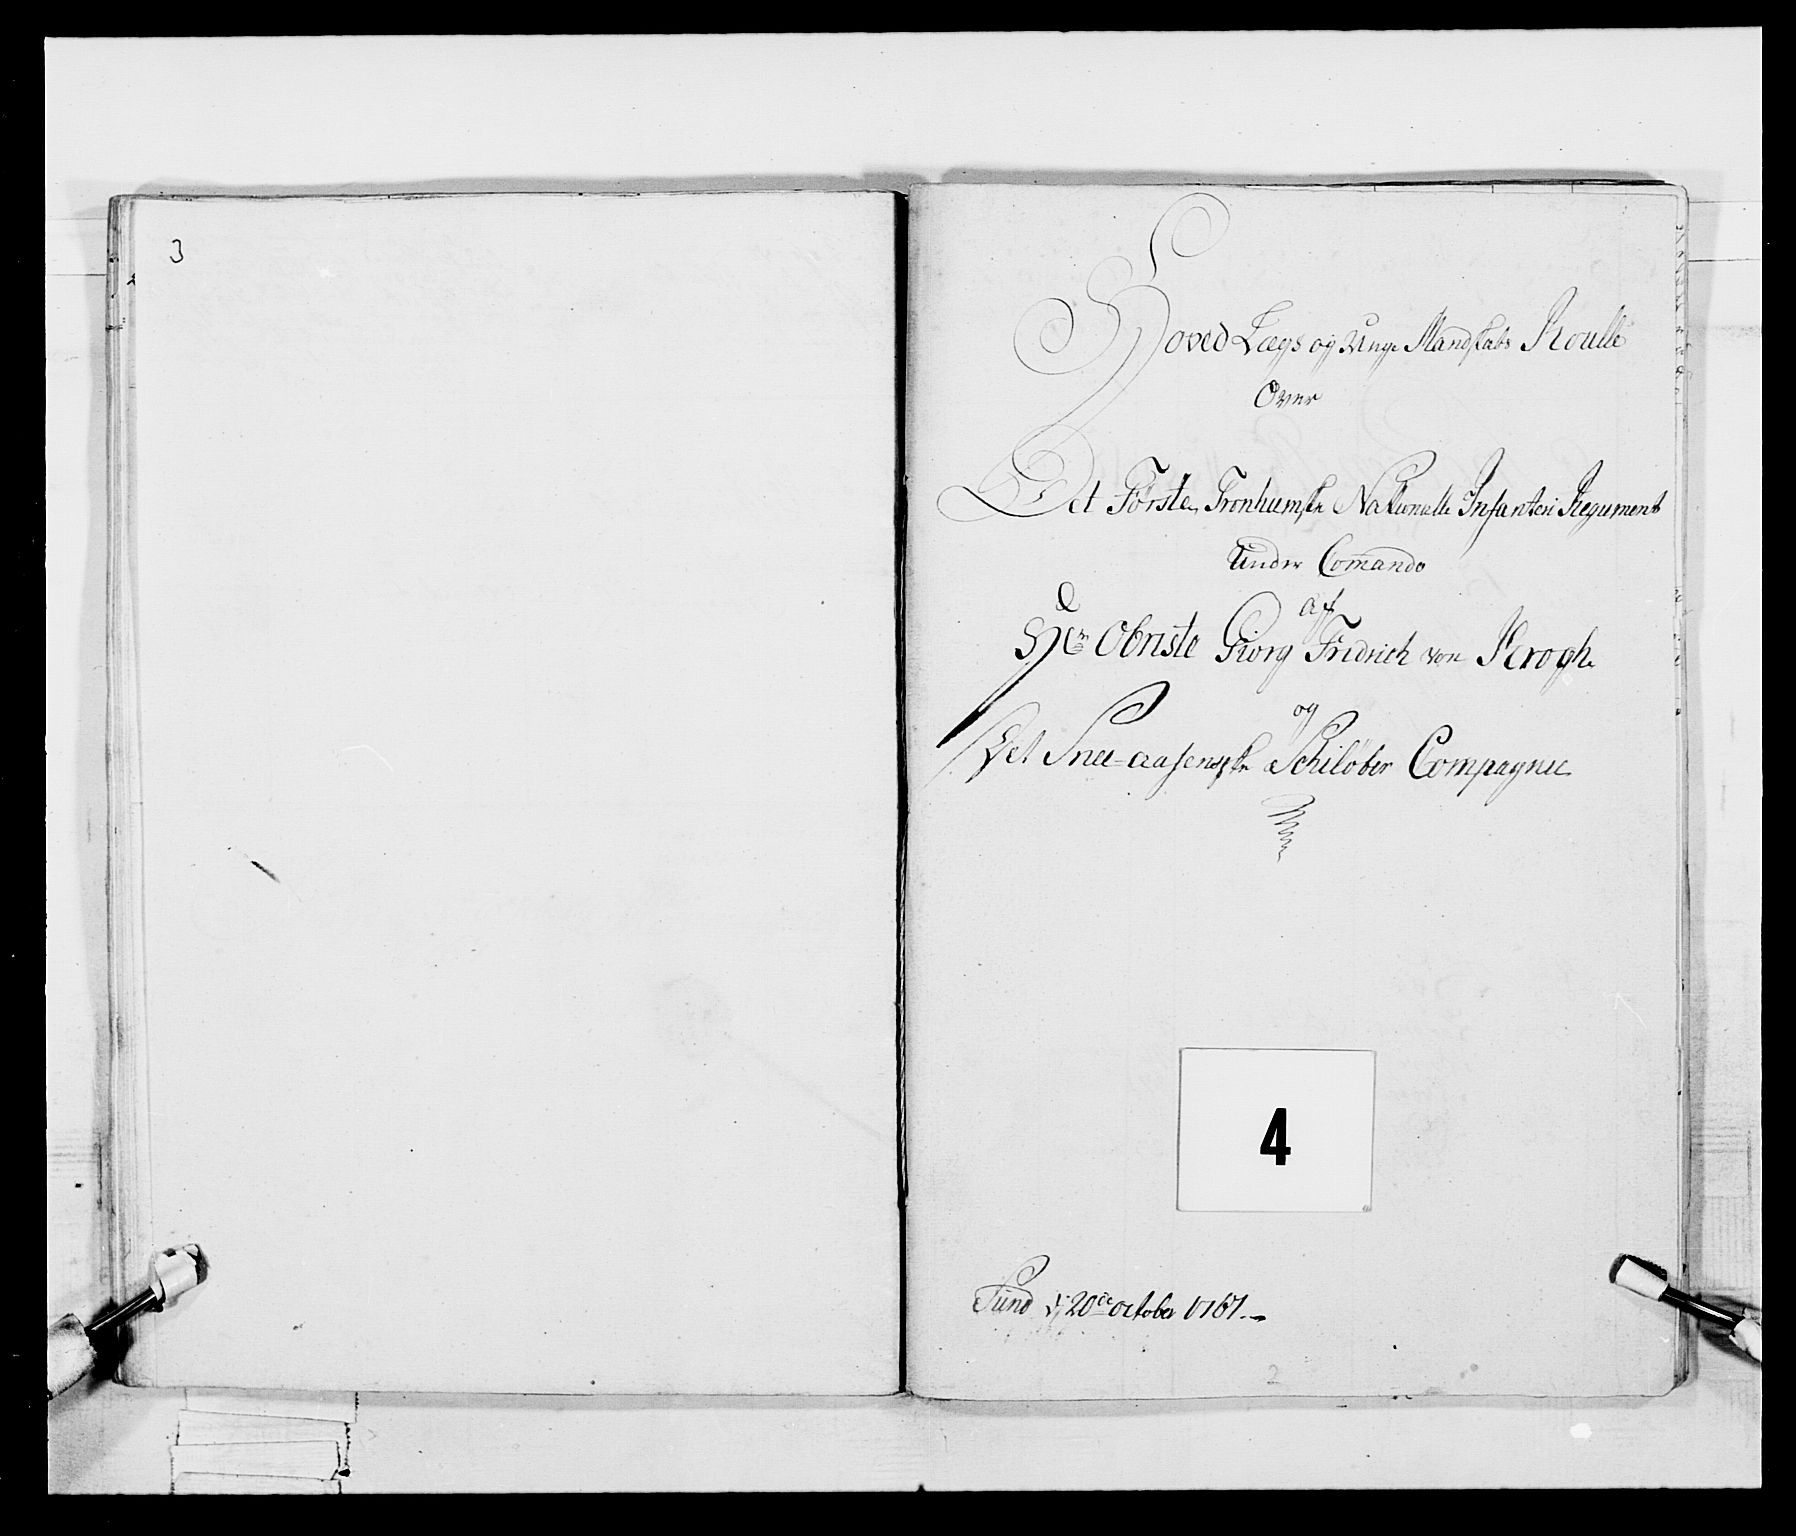 3
Hoved Lægs og Unge Mandskabs Roulle
Over
Det Første Tronhiemske Nationalle Infanteri Regiment
Under Comando
af
Hr Obriste Giorg Fridrich von Krogh
og
Det Snee-aasenske Schiløber Compagnie
4
Sund d 20de october 1767.
2